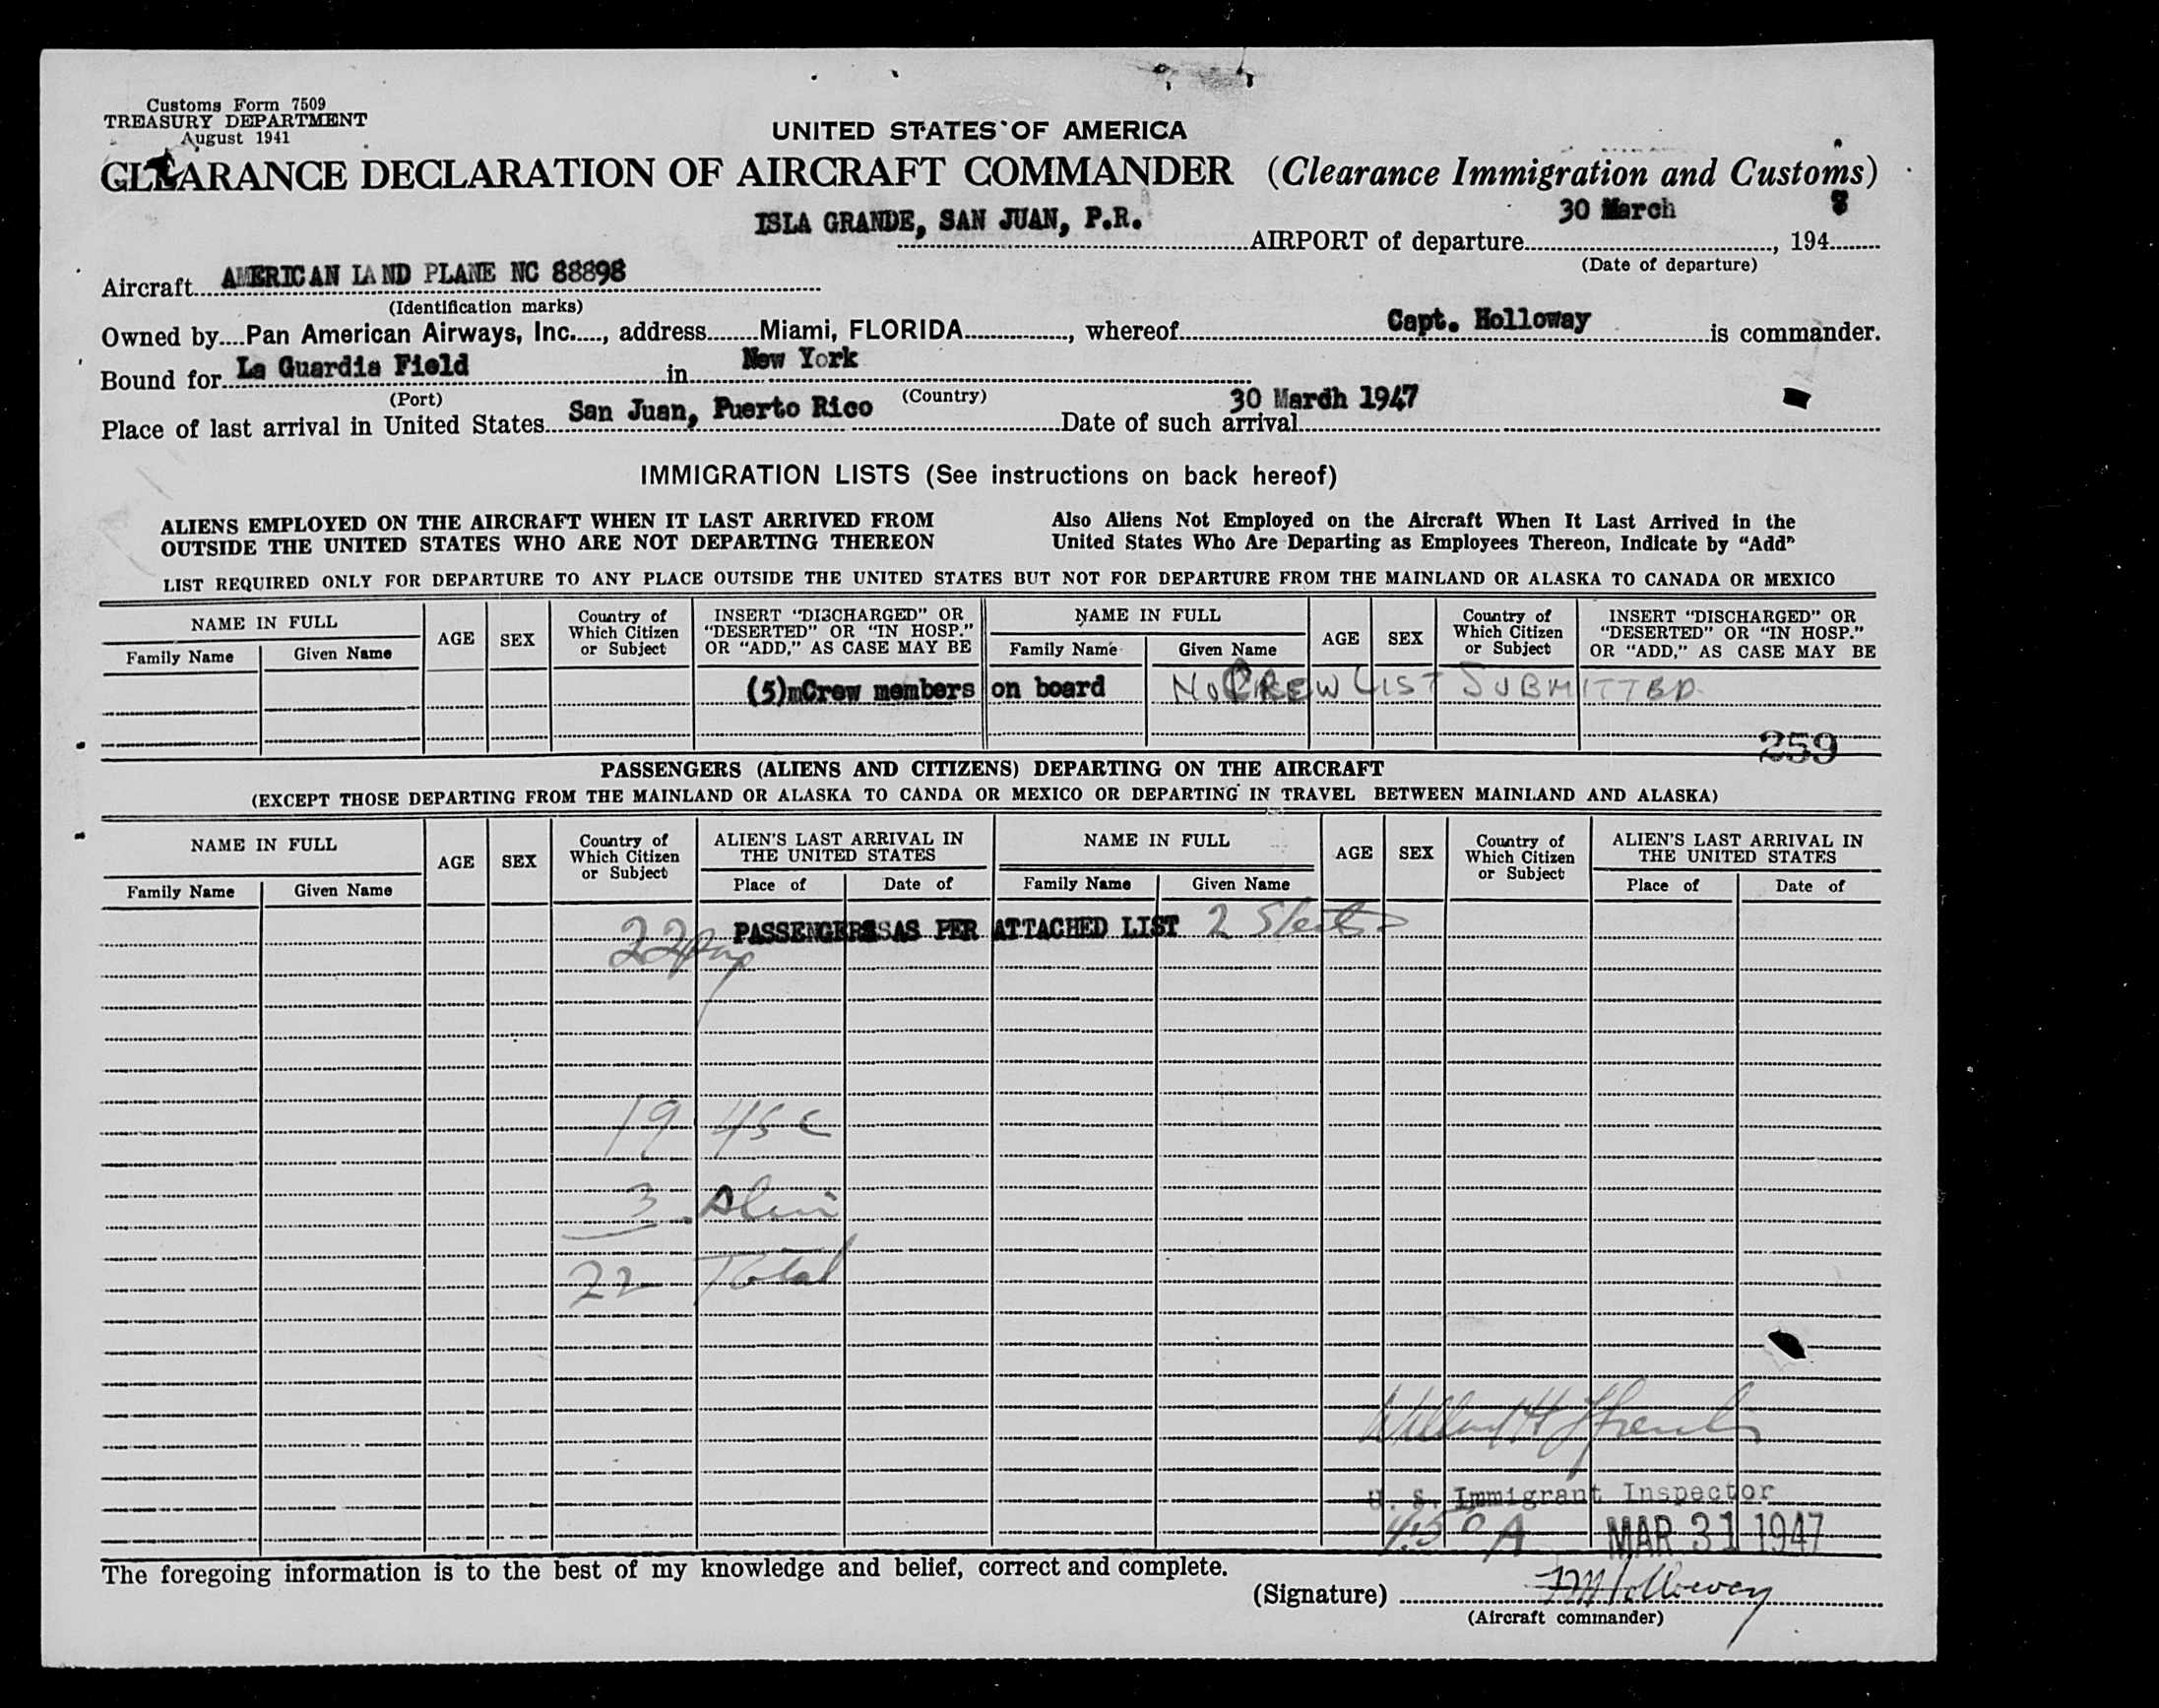 Customs Form 7509
TREASURY DEPARTMENT
August 1941
UNITED STATES OF AMERICA
CLEARANCE DECLARATION OF AIRCRAFT COMMANDER (Clearance Immigration and Customs)
ISLA GRANDE, SAN JUAN, P.R. AIRPORT of departure 30 March, 194
(Date of departure)
Aircraft AMERICAN LAND PLANE NC 88898
(Identification marks)
Owned by Pan American Airways, Inc., address Miami, FLORIDA, whereof Capt. Holloway is commander.
Bound for La Guardia Field in New York
(Port) (Country)
Place of last arrival in United States San Juan, Puerto Rico Date of such arrival 30 Mardh 1947
IMMIGRATION LISTS (See instructions on back hereof)
ALIENS EMPLOYED ON THE AIRCRAFT WHEN IT LAST ARRIVED FROM
OUTSIDE THE UNITED STATES WHO ARE NOT DEPARTING THEREON
Also Aliens Not Employed on the Aircraft When It Last Arrived in the
United States Who Are Departing as Employees Thereon, Indicate by "Add"
LIST REQUIRED ONLY FOR DEPARTURE TO ANY PLACE OUTSIDE THE UNITED STATES BUT NOT FOR DEPARTURE FROM THE MAINLAND OR ALASKA TO CANADA OR MEXICO
NAME IN FULL
Family Name Given Name
AGE
SEX
Country of
Which Citizen
or Subject
INSERT "DISCHARGED" OR
"DESERTED" OR "IN HOSP."
OR "ADD," AS CASE MAY BE
NAME IN FULL
Family Name Given Name
AGE
SEX
Country of
Which Citizen
or Subject
INSERT "DISCHARGED" OR
"DESERTED" OR "IN HOSP."
OR "ADD," AS CASE MAY BE
(5)mCrew members on board No CREW LIST SUBMITTED
259
PASSENGERS (ALIENS AND CITIZENS) DEPARTING ON THE AIRCRAFT
(EXCEPT THOSE DEPARTING FROM THE MAINLAND OR ALASKA TO CANDA OR MEXICO OR DEPARTING IN TRAVEL BETWEEN MAINLAND AND ALASKA)
NAME IN FULL
Family Name Given Name
AGE
SEX
Country of
Which Citizen
or Subject
ALIEN'S LAST ARRIVAL IN
THE UNITED STATES
Place of Date of
NAME IN FULL
Family Name Given Name
AGE
SEX
Country of
Which Citizen
or Subject
ALIEN'S LAST ARRIVAL IN
THE UNITED STATES
Place of Date of
PASSENGERSSAS PER ATTACHED LIST 2
22
19 USC
3 Alien
22 Total
U. S. Immigrant Inspector
450 A MAR 31 1947
The foregoing information is to the best of my knowledge and belief, correct and complete.
(Signature) Holloway
(Aircraft commander)